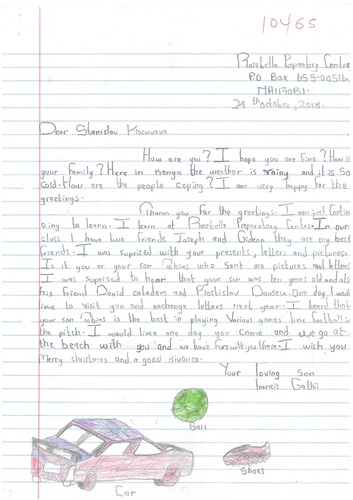 10465
Rosebella Preparatory Centre
P.O. Box 655-00516
24th October, 2018.
Dear Stanislav
How are you? I hope you are fine? How is
your family? Here in Kenya the weather is rainy and it is so
cold. How are the people coping? I am very happy for the
greetings.
Thank you for the greetings. I am just contin
eing to learn. I learn at Rosebella Preparatory Centre. In our
class I have two friends Joseph and Gideon they are my best
friends. I was suprised with your presents, letters and pictures.
Is it you or your son Tobias who sent me pictures and letters
I was suprised to hear that your son was ten years old and also
his friend David and One day I would
love to visit you and exchange letters next year. I heard that
your son Tobias is the best in playing various games like football in
the pitch. I would love one day you come and we go at
the beach with you and we have fun with you there. I wish you
Merry christmas and a good
Your loving son
Francis Gathii
Ball
Shoes
Car